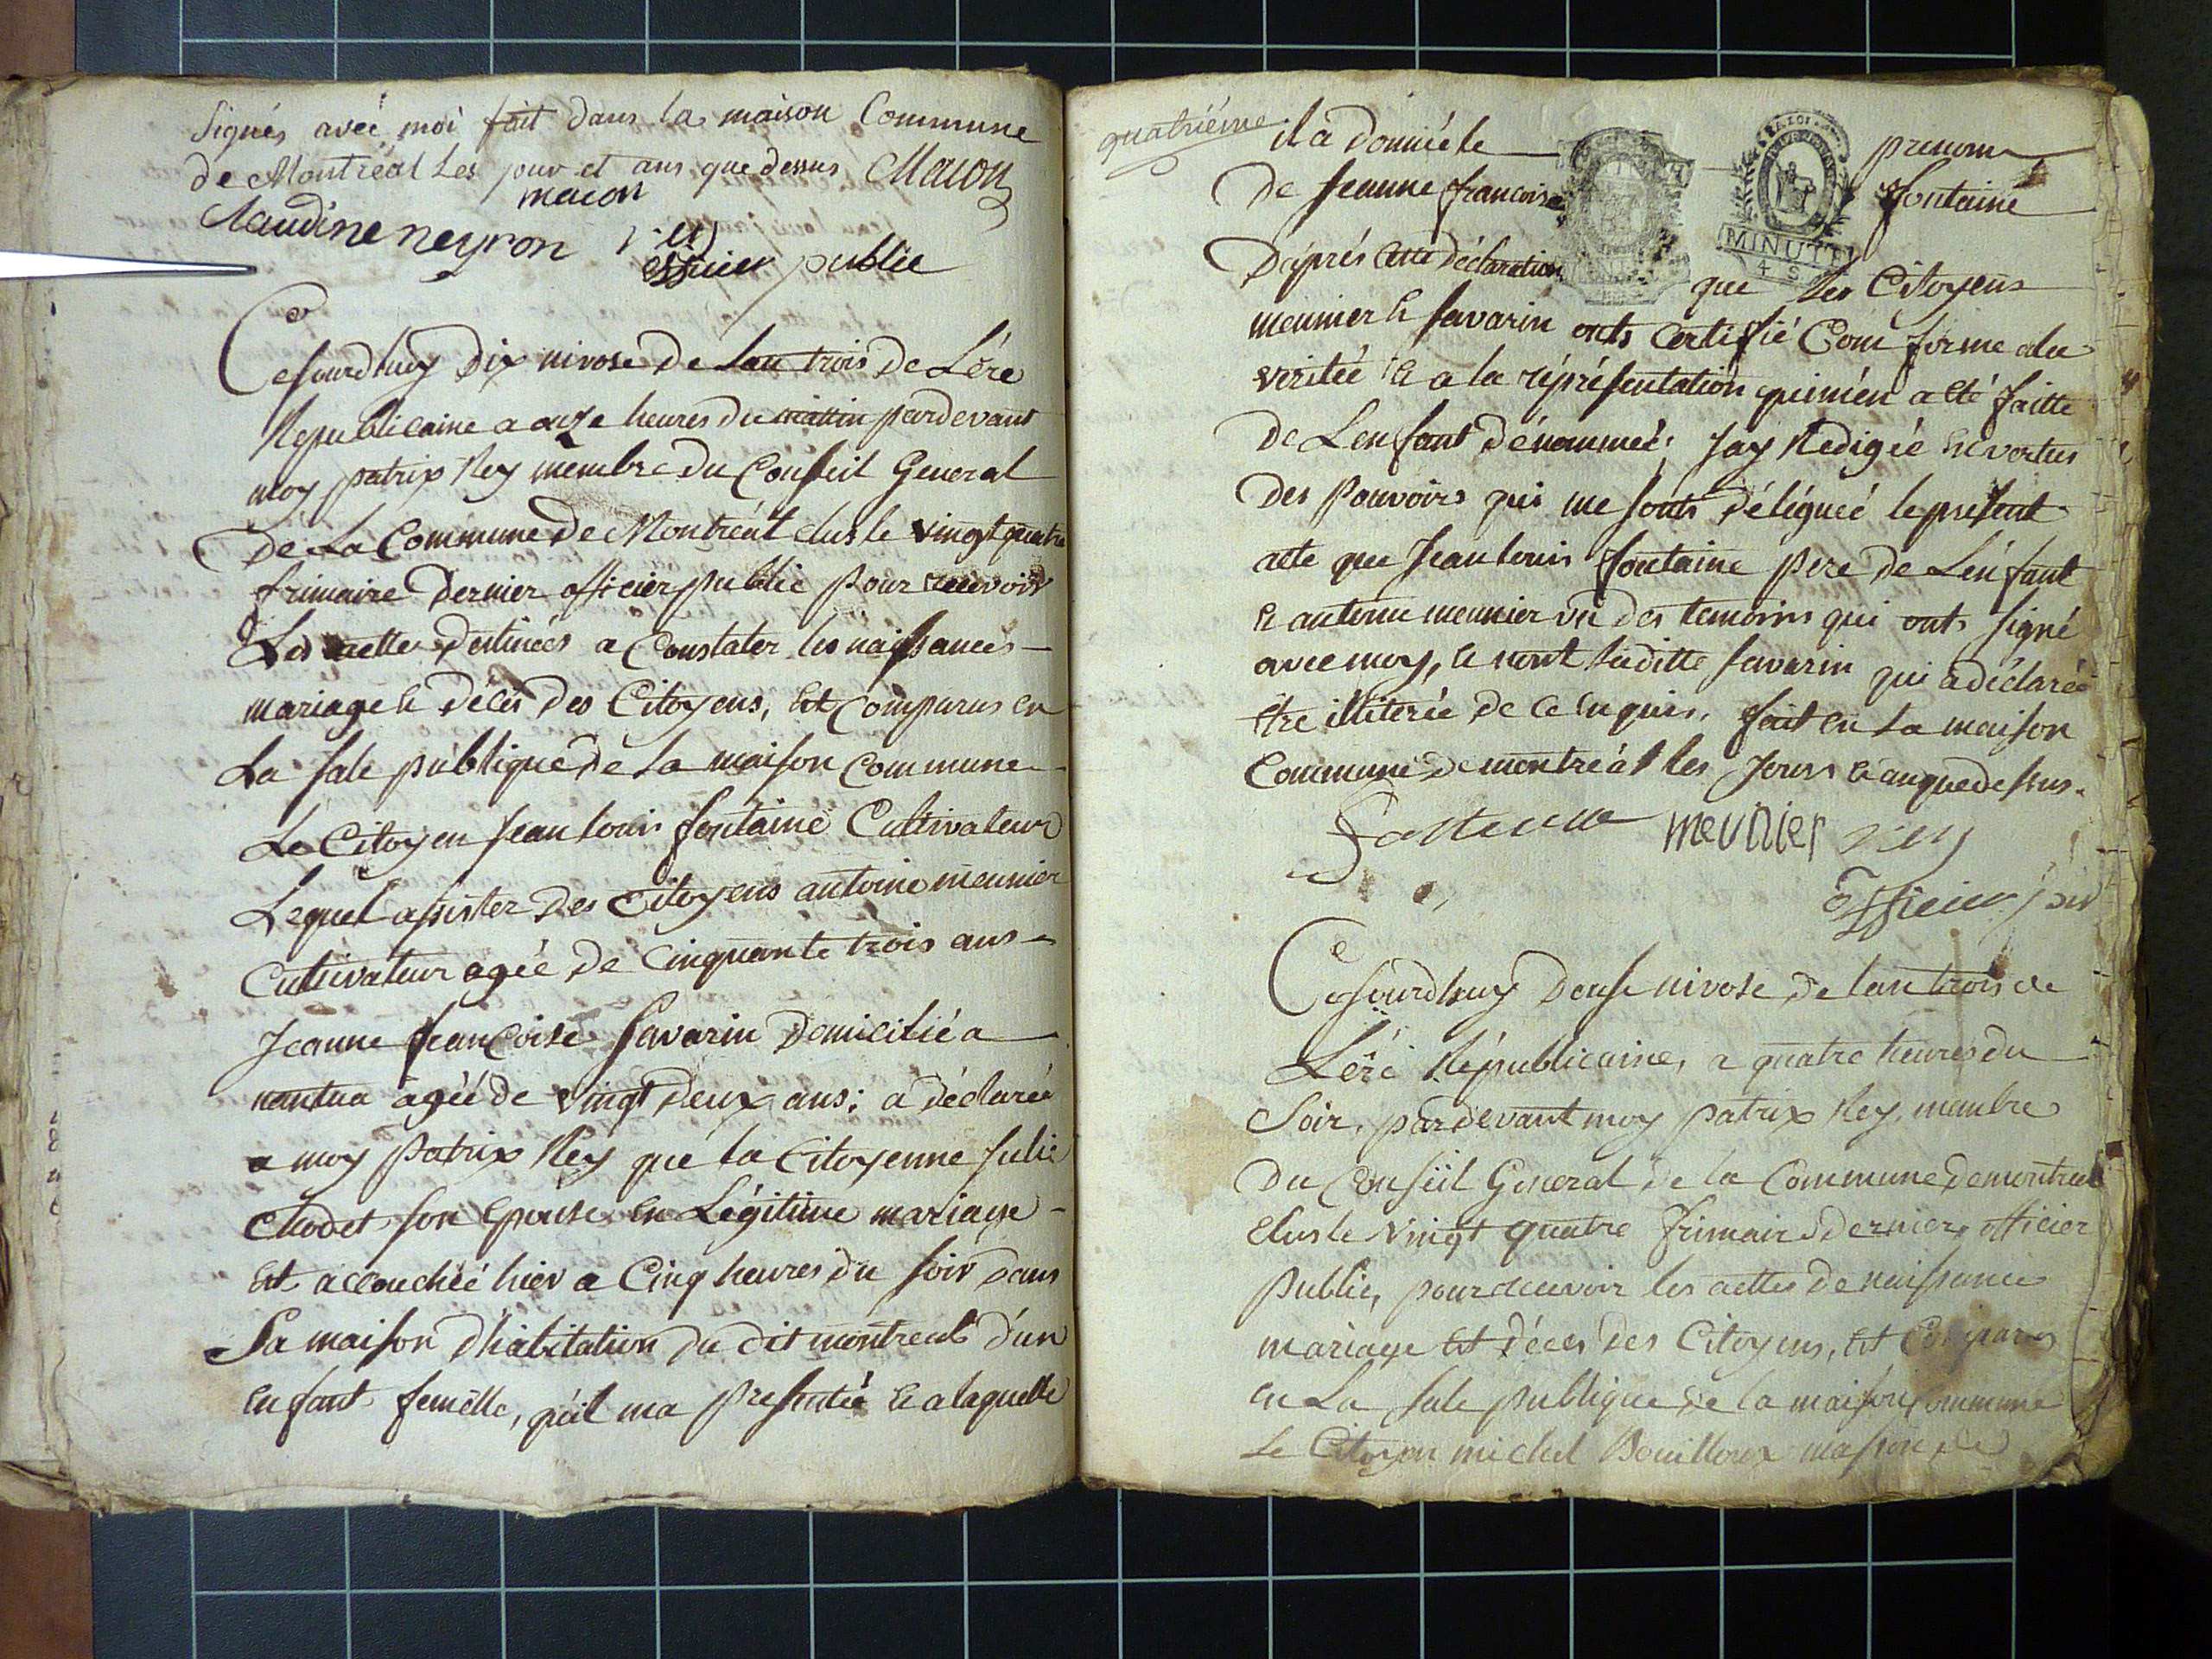 Signés avec moi fait dans la maison Commune
de Montréal Les jour et ans que dessus Macon
macon
Claudine neyron rey
officier public
Cejourdhuy Dix nivose de Lan trois de Lére
Republicaine a onze heures du mattin pardevant
moy patrix Rey membre du Conseil General
de La Commune de Montréal elus le vingt quatre
frimaire Dernier officier public pour recevoir
Les actte destinées a Constater les naissances
mariage et décés des Citoyens, est comparus en
La sale publique de la maison Commune
Le Citoyen jean louis fontaine Cultivateur
Lequel assister des Citoyens antoine meunier
Cultivateur agée de Cinquante trois ans
Jeanne francoise Savarin Domicilié a
nantua agée de vingt deux ans; a déclarée
a moy patrix Rey que la Citoyenne julie
Chodet son Epouse en Légitime mariage
Est accouchée hier a Cinq heures du soir dans
Sa maison d'habitation du dit montreal d'un
enfant femelle, qu'il ma presentée et a laquelle
quatriéme
il a donnée le prenom
De jeanne francoise fontaine
MINUTE
4 S
D'aprés cette déclaration que les Citoyens
meunier et Savarin onts certifié Conforme a la
veritée et a la réprésentation qui m'en a été faitte
De L'enfant dénommée; jay Redigée en vertus
Des Pouvoirs qui me sonts déléguéé le present
acte que jean louis fontaine pere de L'énfant
et antoine meunier un des temoins qui onts signé
avec moy, et nont laditte Savarin qui a déclarée
être illiterée de ce enquis. fait en La maison
Commune de montreál les Jours et an que dessus.
fontaine meunier rey
officier
Cejourdhuy douse nivose de lan trois de
Léré Républicaine, a quatre heures du
Soir, pardevant moy patrix Rey, membre
Du Conseil General de la Commune de montreal
elus le vingt quatre frimaire dernier officier
Public, pour recevoir les acttes de naissance
mariage et décés des Citoyens, est Comparus
en La sale publique de la maison commune
Le Citoyen michel Bouilloux masson